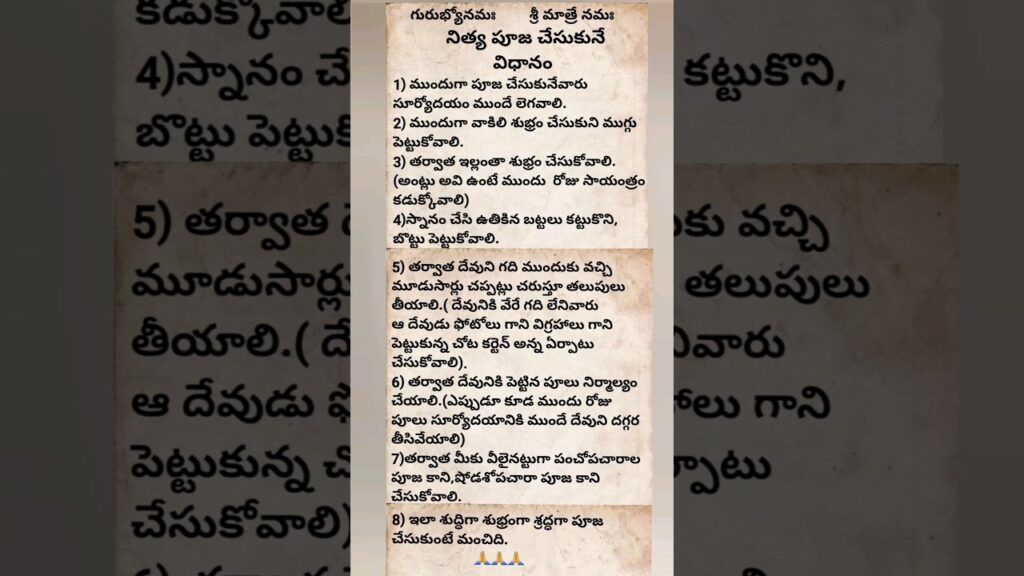 గురుభ్యోనమః శ్రీ మాత్రే నమః
నిత్య పూజ చేసుకునే
విధానం
1) ముందుగా పూజ చేసుకునేవారు
సూర్యోదయం ముందే లెగవాలి.
2) ముందుగా వాకిలి శుభ్రం చేసుకుని ముగ్గు
పెట్టుకోవాలి.
3) తర్వాత ఇల్లంతా శుభ్రం చేసుకోవాలి.
(అంట్లు అవి ఉంటే ముందు రోజు సాయంత్రం
కడుక్కోవాలి)
4)స్నానం చేసి ఉతికిన బట్టలు కట్టుకొని,
బొట్టు పెట్టుకోవాలి.
5) తర్వాత దేవుని గది ముందుకు వచ్చి
మూడుసార్లు చప్పట్లు చరుస్తూ తలుపులు
తీయాలి.( దేవునికి వేరే గది లేనివారు
ఆ దేవుడు ఫోటోలు గాని విగ్రహాలు గాని
పెట్టుకున్న చోట కర్టెన్ అన్న ఏర్పాటు
చేసుకోవాలి).
6) తర్వాత దేవునికి పెట్టిన పూలు నిర్మాల్యం
చేయాలి.(ఎప్పుడూ కూడ ముందు రోజు
పూలు సూర్యోదయానికి ముందే దేవుని దగ్గర
తీసివేయాలి)
7)తర్వాత మీకు వీలైనట్టుగా పంచోపచారాల
పూజ కాని,షోడశోపచారా పూజ కాని
చేసుకోవాలి.
8) ఇలా శుద్ధిగా శుభ్రంగా శ్రద్ధగా పూజ
చేసుకుంటే మంచిది.
🙏🙏🙏